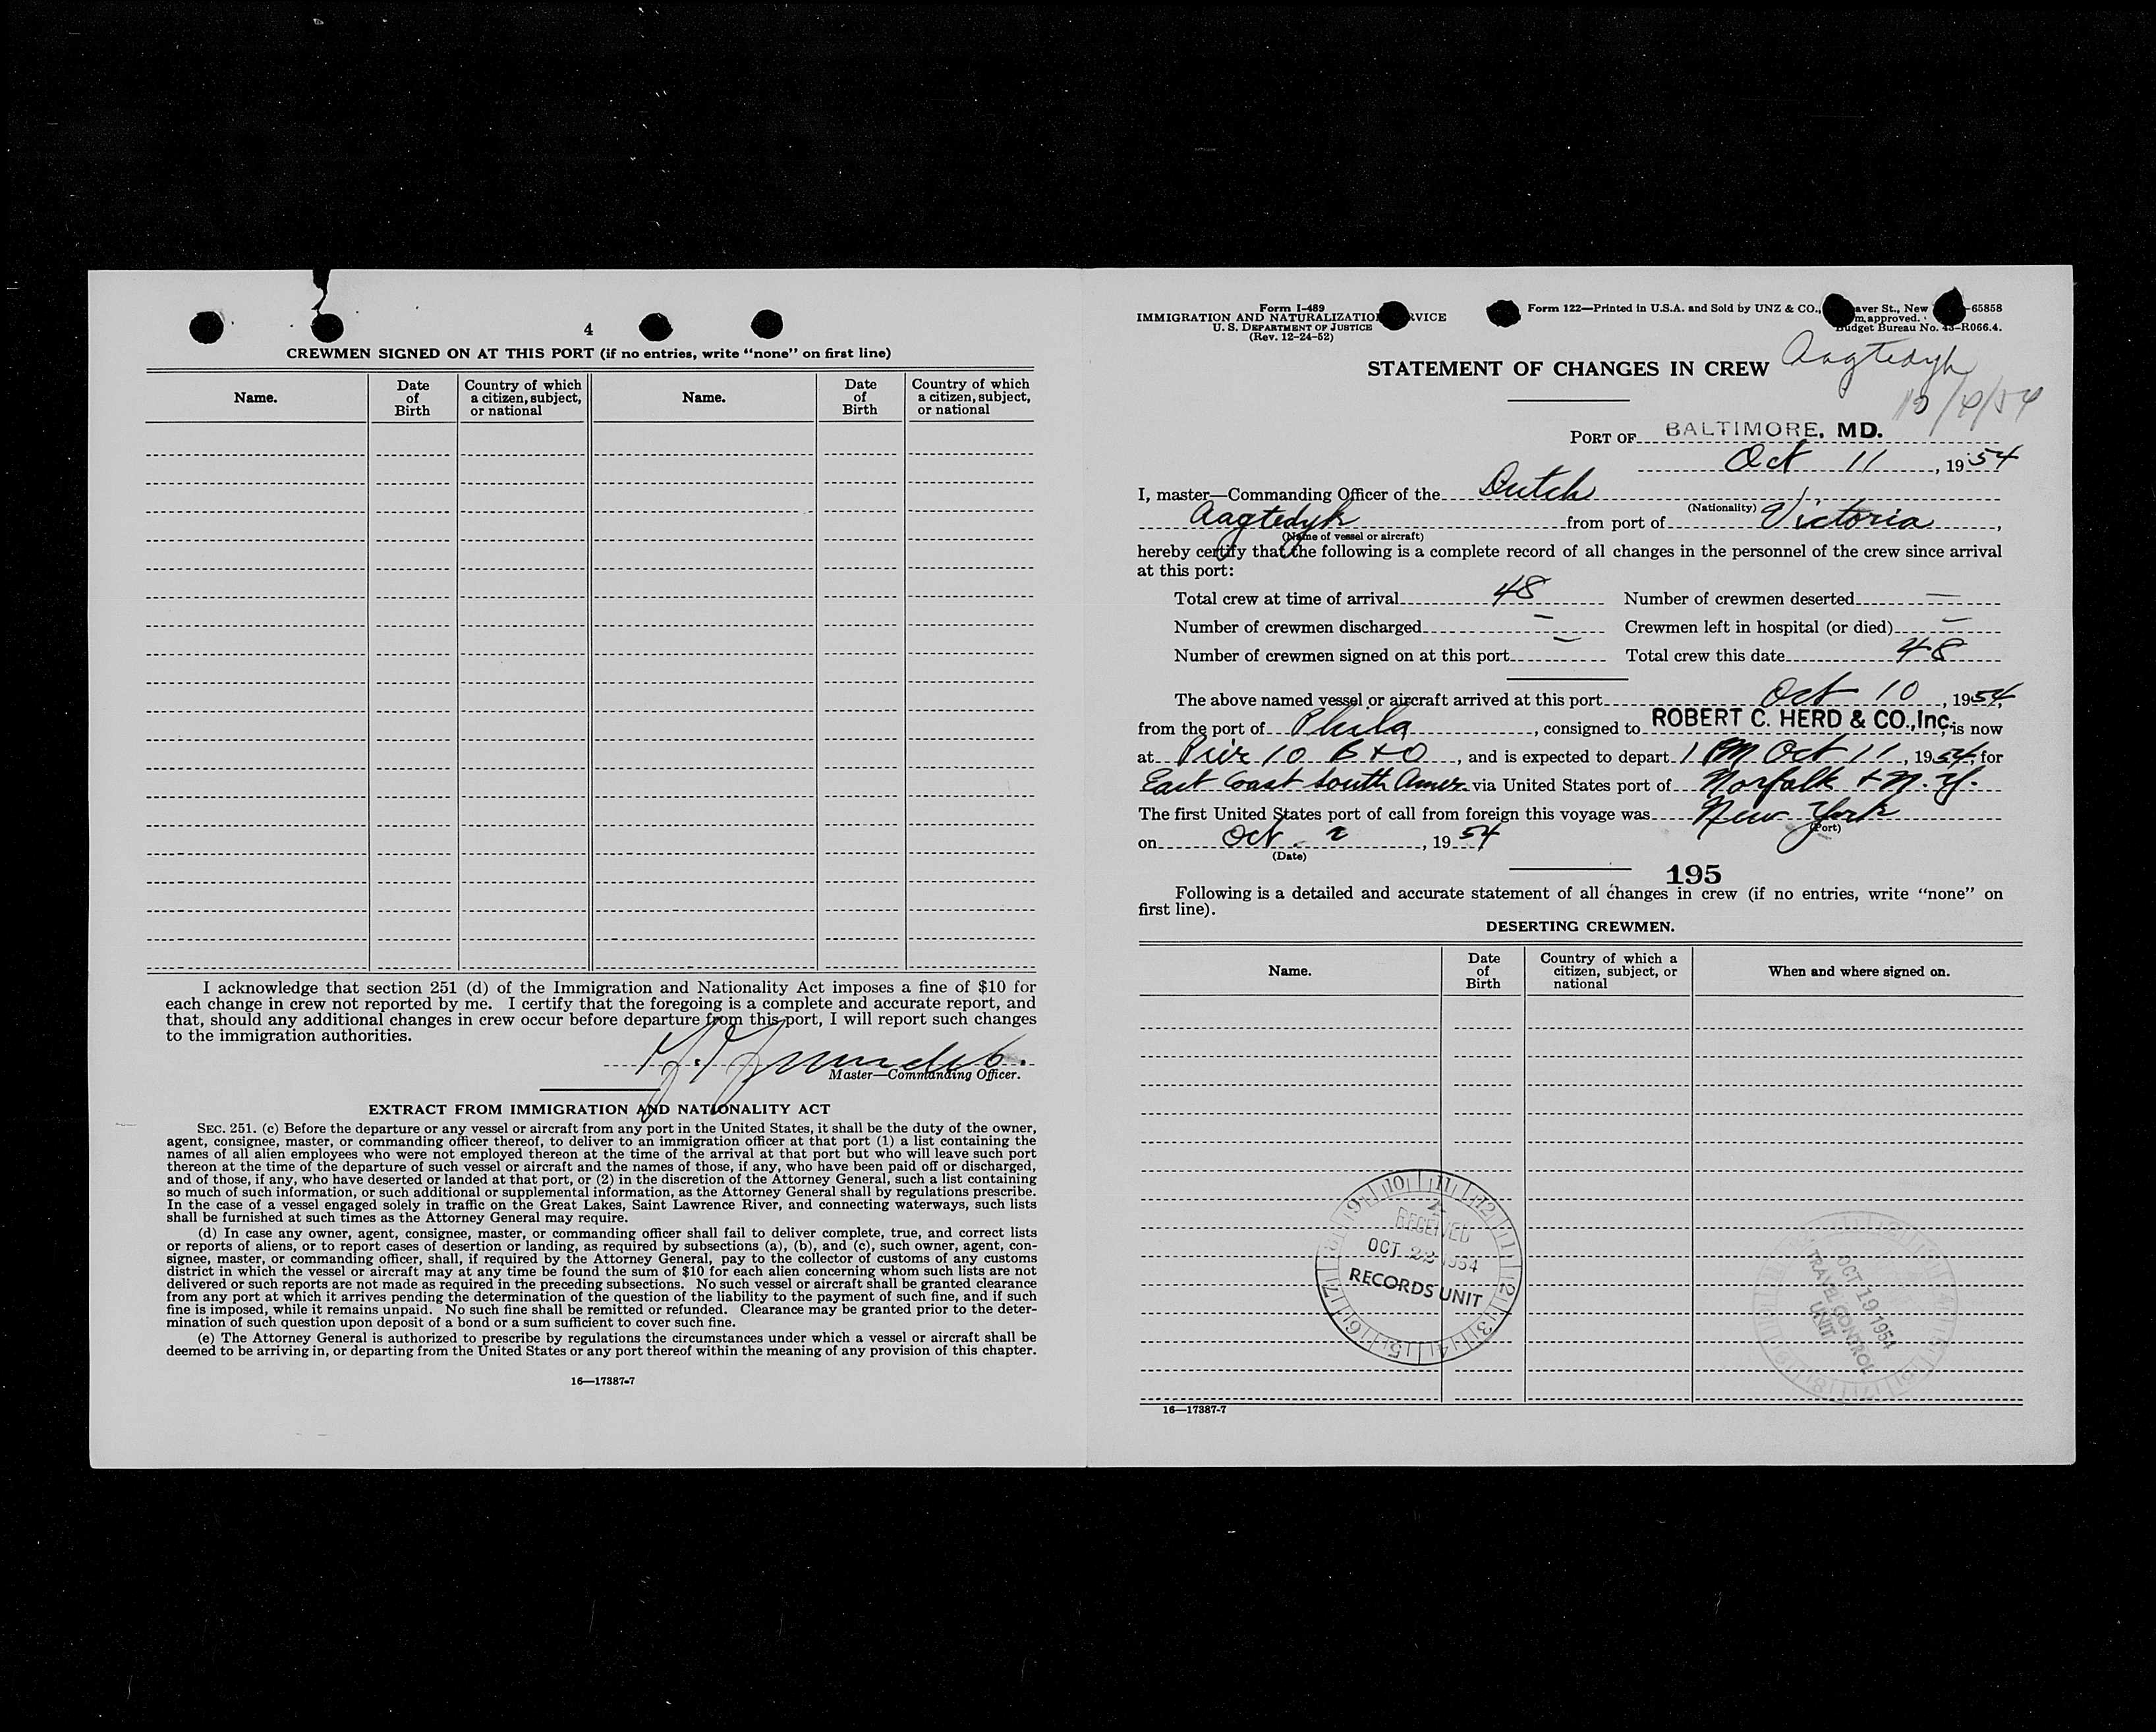 4
CREWMEN SIGNED ON AT THIS PORT (if no entries, write "none" on first line)
Name. Date of Birth Country of which a citizen, subject, or national Name. Date of Birth Country of which a citizen, subject, or national
I acknowledge that section 251 (d) of the Immigration and Nationality Act imposes a fine of $10 for
each change in crew not reported by me. I certify that the foregoing is a complete and accurate report, and
that, should any additional changes in crew occur before departure from this port, I will report such changes
to the immigration authorities.
Master—Commanding Officer.
EXTRACT FROM IMMIGRATION AND NATIONALITY ACT
SEC. 251. (c) Before the departure or any vessel or aircraft from any port in the United States, it shall be the duty of the owner,
agent, consignee, master, or commanding officer thereof, to deliver to an immigration officer at that port (1) a list containing the
names of all alien employees who were not employed thereon at the time of the arrival at that port but who will leave such port
thereon at the time of the departure of such vessel or aircraft and the names of those, if any, who have been paid off or discharged,
and of those, if any, who have deserted or landed at that port, or (2) in the discretion of the Attorney General, such a list containing
so much of such information, or such additional or supplemental information, as the Attorney General shall by regulations prescribe.
In the case of a vessel engaged solely in traffic on the Great Lakes, Saint Lawrence River, and connecting waterways, such lists
shall be furnished at such times as the Attorney General may require.
(d) In case any owner, agent, consignee, master, or commanding officer shall fail to deliver complete, true, and correct lists
or reports of aliens, or to report cases of desertion or landing, as required by subsections (a), (b), and (c), such owner, agent, con-
signee, master, or commanding officer, shall, if required by the Attorney General, pay to the collector of customs of any customs
district in which the vessel or aircraft may at any time be found the sum of $10 for each alien concerning whom such lists are not
delivered or such reports are not made as required in the preceding subsections. No such vessel or aircraft shall be granted clearance
from any port at which it arrives pending the determination of the question of the liability to the payment of such fine, and if such
fine is imposed, while it remains unpaid. No such fine shall be remitted or refunded. Clearance may be granted prior to the deter-
mination of such question upon deposit of a bond or a sum sufficient to cover such fine.
(e) The Attorney General is authorized to prescribe by regulations the circumstances under which a vessel or aircraft shall be
deemed to be arriving in, or departing from the United States or any port thereof within the meaning of any provision of this chapter.
16—17387-7
Form I-489
IMMIGRATION AND NATURALIZATIO RVICE
U. S. DEPARTMENT OF JUSTICE
(Rev. 12-24-52)
Form 122—Printed in U.S.A. and Sold by UNZ & CO., aver St., New -65858
m approved.
Budget Bureau No. 43-R066.4.
STATEMENT OF CHANGES IN CREW Aagtedyk
PORT OF BALTIMORE, MD.
Oct 11, 1954
I, master—Commanding Officer of the Dutch
(Nationality)
Aagtedyk from port of Victoria,
(Name of vessel or aircraft)
hereby certify that the following is a complete record of all changes in the personnel of the crew since arrival
at this port:
Total crew at time of arrival 48 Number of crewmen deserted —
Number of crewmen discharged — Crewmen left in hospital (or died) —
Number of crewmen signed on at this port — Total crew this date 48
The above named vessel or aircraft arrived at this port Oct 10, 1954,
from the port of Phila, consigned to ROBERT C. HERD & CO., Inc. is now
at Pier 10 B+O, and is expected to depart 1 PM Oct 11, 1954, for
East Coast South Amer. via United States port of Norfolk + N.Y.
The first United States port of call from foreign this voyage was New York
(Port)
on Oct. 2, 1954
(Date)
195
Following is a detailed and accurate statement of all changes in crew (if no entries, write "none" on
first line).
DESERTING CREWMEN.
Name. Date of Birth Country of which a citizen, subject, or national When and where signed on.
9 10 11 12 1 2 3 4 5 6 7 8
RECEIVED
OCT 22 1954
RECORDS UNIT
OCT 19 1954
TRAVEL CONTROL
UNIT
16—17387-7